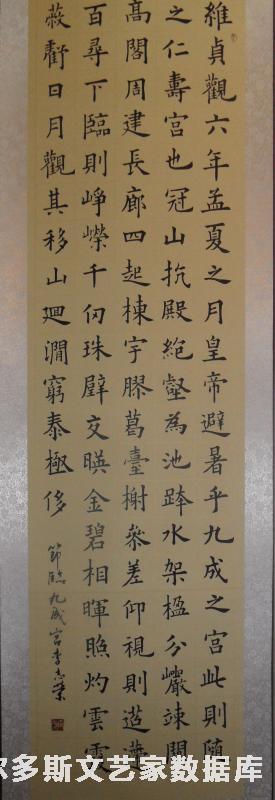 維貞觀六年孟夏之月皇帝避暑乎九成之宮此則隨
之仁壽宮也冠山抗殿絕壑為池跨水架楹分巖竦闕
高閣周建長廊四起棟宇膠葛臺榭參差仰視則迢遰
百尋下臨則崢嶸千仞珠璧交暎金碧相暉照灼雲霞
蔽虧日月觀其移山迴澗窮泰極侈
節臨九成宮李志榮
尔多斯文艺家数据库